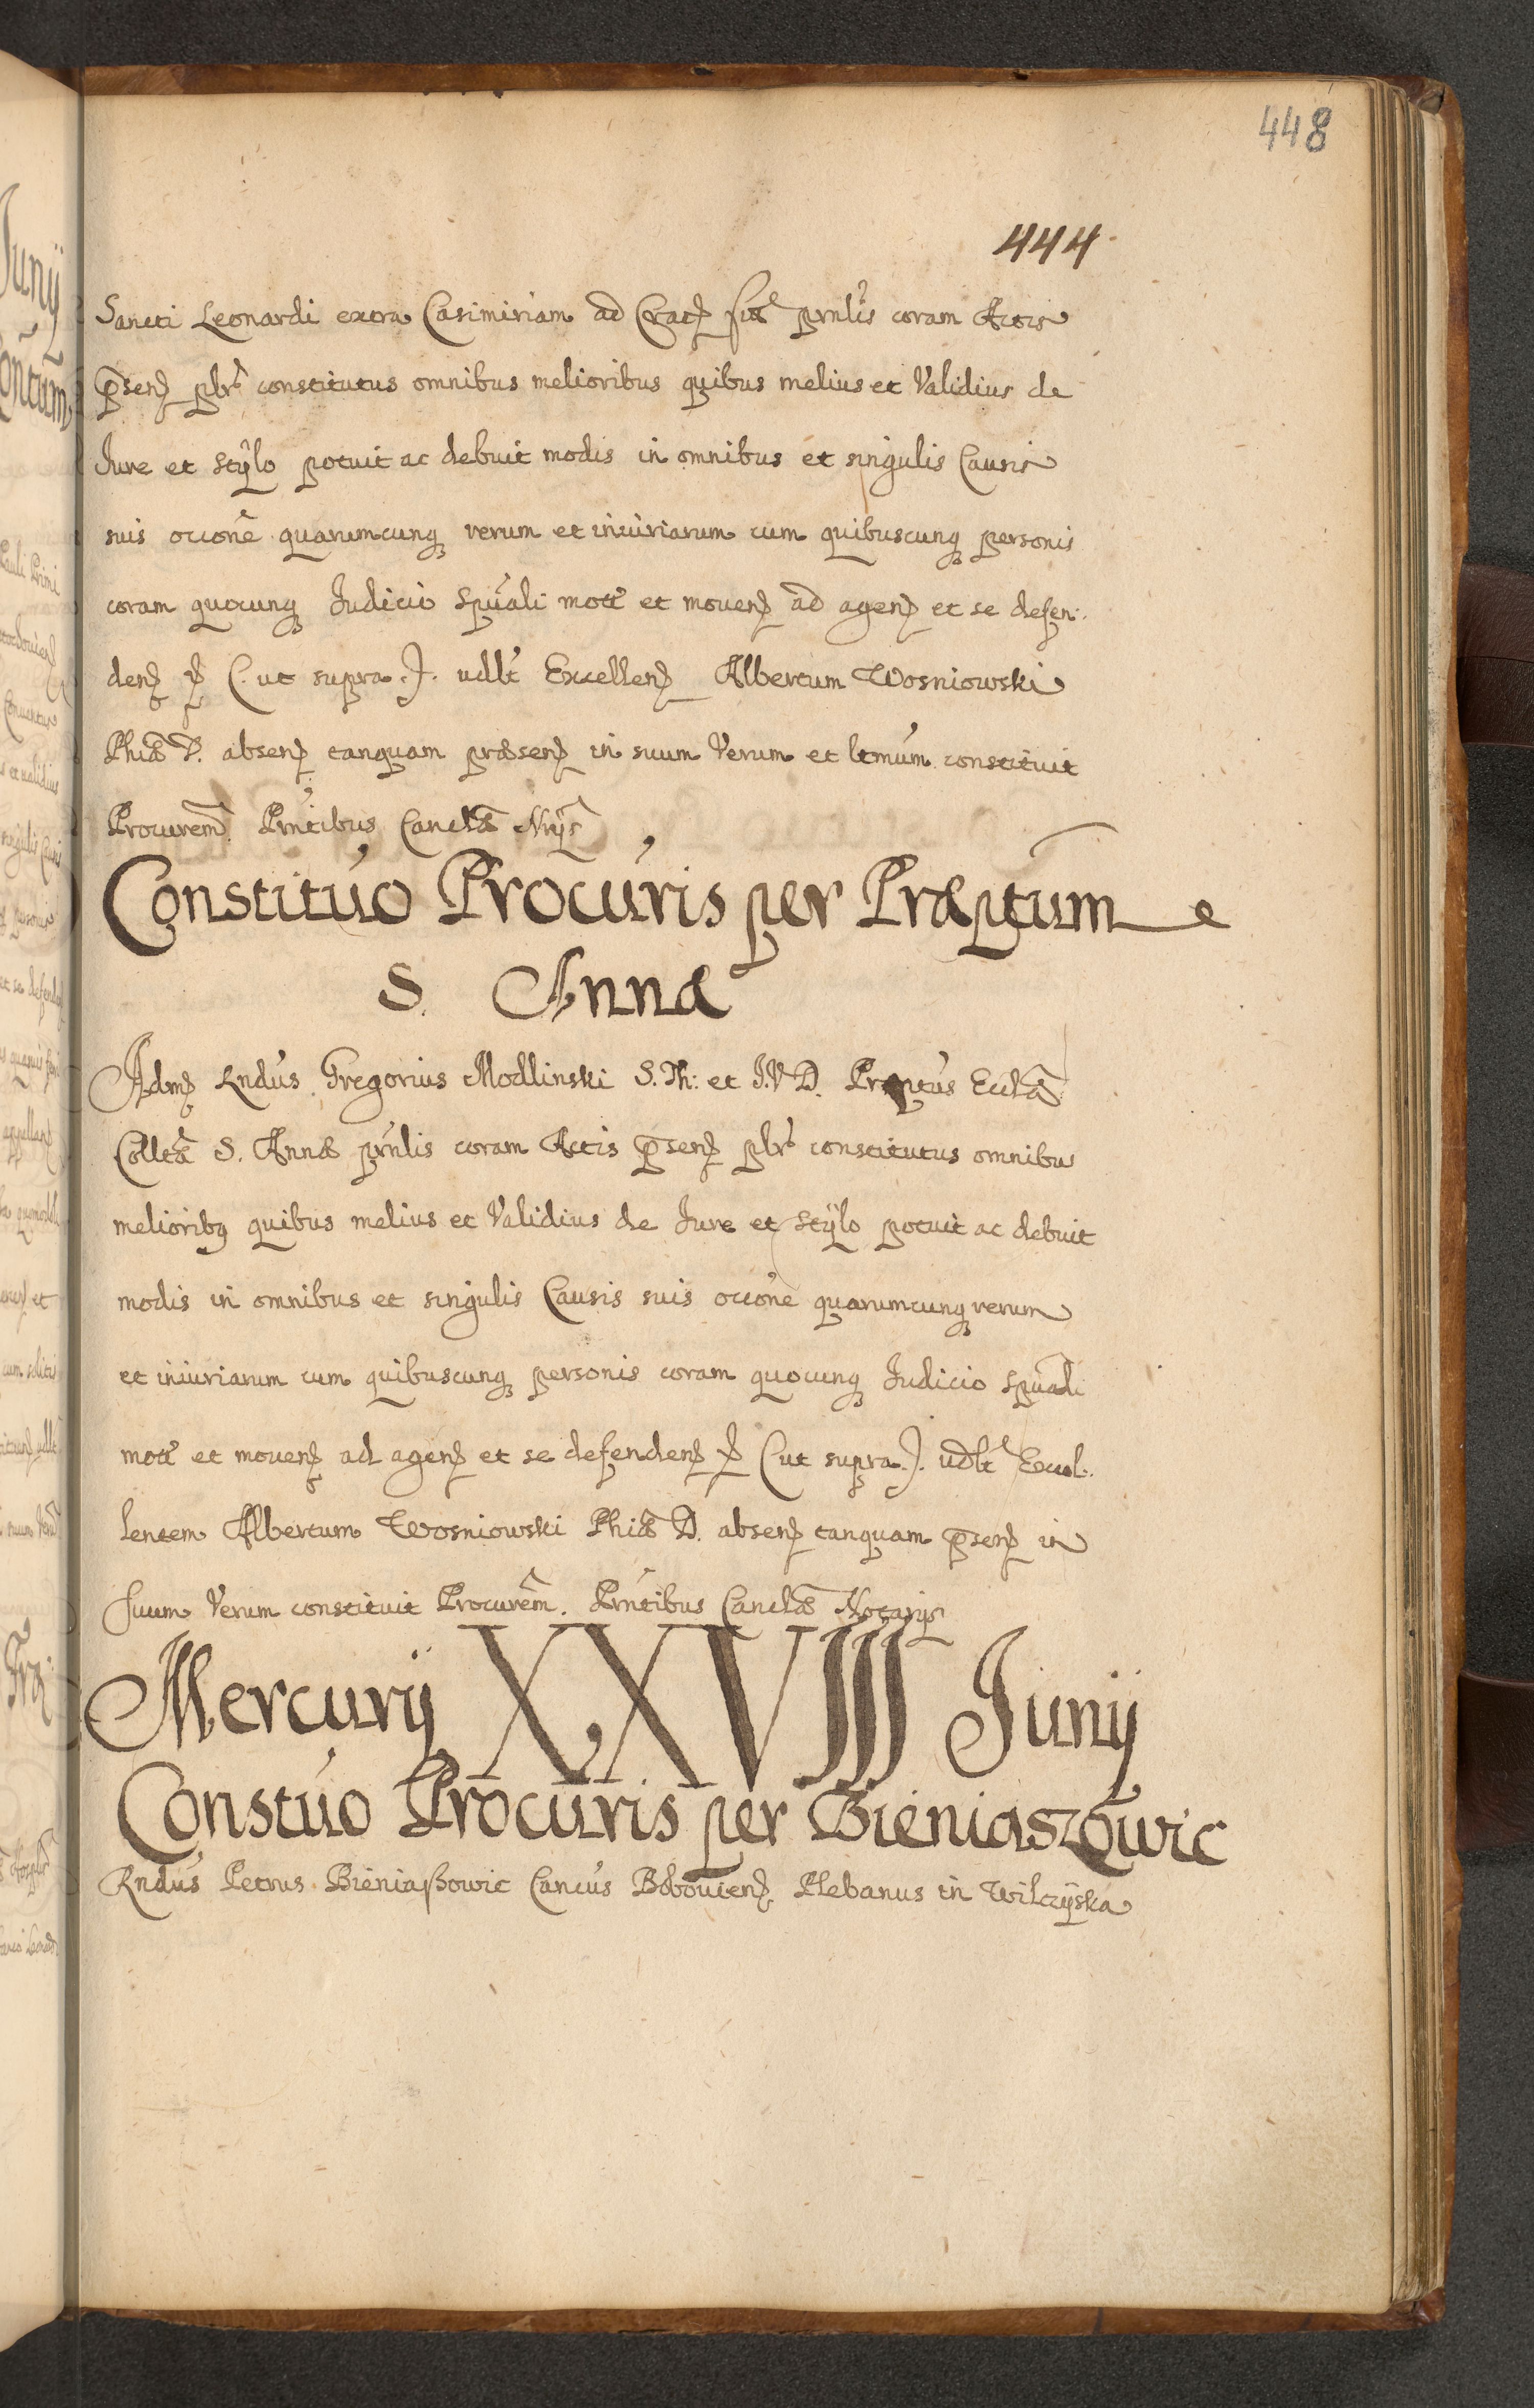 448
444
Sancti Leonardi extra Casimiriam ad Crac̄ sitæ prnlis coram Actis
p̄sen̄ plr̄ constitutus omnibus melioribus quibus melius et Validius de
Iure et Stÿlo potuit ac debuit modis in omnibus et singulis Causis
suis occōne quarumcunq₃ rerum et iniuriarum cum quibuscunq₃ personis
coram quocunq₃ Iudicio Spuāli mott et mouen̄ ad agen̄ et se defen.
den̄ (. ut supra .). udlt Excellen̄ Albertum Wosniowski
Phiæ D. absen̄ tanquam præsen̄ in suum Verum et ltmum constituit
Procurem̄. Prntibus Canclæ Nrijs
Constitúo Procúris per Præptum
S. Annæ
Adm̄ Rndus Gregorius Modlinski S. Th: et I.V.D. Præptus Ecclæ
Colltæ S. Annæ prnlis coram Actis p̄sen̄ plr̄ constitutus omnibus
melioribq₃ quibus melius et Validius de Iure et Stÿlo potuit ac debuit
modis in omnibus et singulis Causis suis occōne quarumcunq₃ rerum
et iniuriarum cum quibuscunq₃ personis coram quocunq₃ Iudicio Spuāli
mott et mouen̄ ad agen̄ et se defenden̄ (ut supra.). udlt Excel.
lentem Albertum Wosniowski Phiæ D. absen̄ tanquam p̄sen̄ in
suum Verum constituit Procurem̄. Prntibus Canclæ Notarijs
Mercurij XXVIII Junij
Constúo Procúris per Bieniaszowic
Rndús Petrus Bieniaszowic Cancús Bobouien̄ Plebanus in Wilczÿska